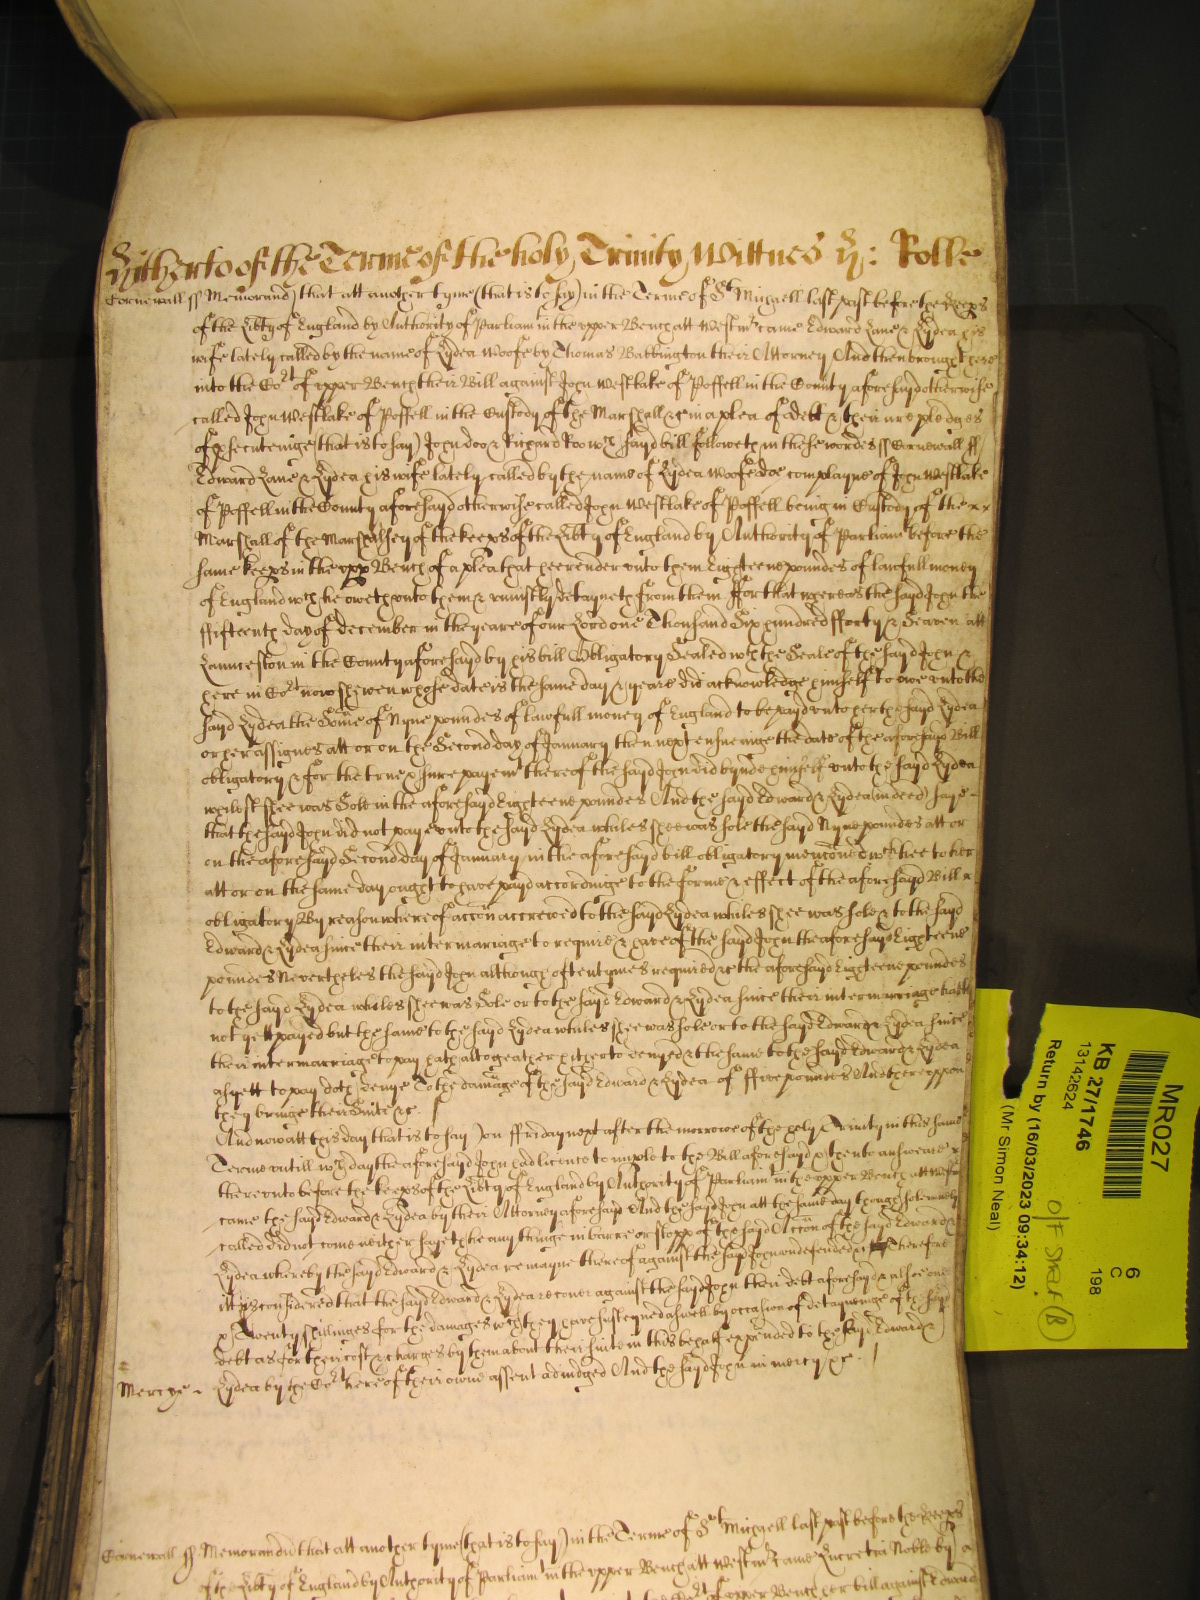 Hitherto of the Terme of the holy Trinity Wittnes H: Rolle
Cornewall ss Memorand that att another tyme (that is to say) in the Terme of St Michaell last past before the Keeps
of the Libty of England by Authority of Parliamt in the upper Bench att Westmr came Edward Lane & Lydea his
wife lately called by the name of Lydea Woofe by Thomas Babbington their Attorney And then brought there
into the Cort of upper Bench their Bill against John Westlake of Poffell in the County aforesayd otherwise
called John Westlake of Poffell in the Custody of the Marshall &c in a plea of debt & their are pledges
of psecuteinge that is to say) John doo & Richard Roo wch sayd bill followeth in these wordes ss Cornewall ss
Edward Lane & Lydea his wife lately called by the name of Lydea Woofe doe complayne of John Westlake
of Poffell in the County aforesayd otherwise called John Westlake of Poffell being in Custody of the
Marshall of the Marshalsey of the keeps of the Libty of England by Authority of Parliamt before the
same keeps in the upp Bench of a plea that hee render unto them Eighteene poundes of lawfull money
of England wch he oweth unto them & uniustly detayneth from them ffor that whereas the sayd John the
ffifteenth day of december in the yeare of our Lord one Thousand Six hundred fforty & Seaven att
Launceston in the County aforesayd by his bill Obligatory Sealed wth the Seale of the sayd John &
here in Cort now shewen whose date is the same day & yeare did acknowledge himself to owe unto the
sayd Lydea the Some of Nyne poundes of lawfull money of England to be payd unto her the sayd Lydea
or her assignes att or on the Second day of January then next ensueinge the date of the aforesayd Bill
obligatory & for the true & sure payemt thereof the sayd John did bynde himself unto the sayd Lydea
whilest shee was Sole in the aforesayd Eighteene poundes And the sayd Edward & Lydea (indeed) saye
that the sayd John did not pay unto the sayd Lydea whiles shee was sole the sayd Nyne poundes att or
on the aforesayd Second day of January in the aforesayd bill obligatory mencioned wch hee to her
att or on the same day ought to have payd accordinge to the forme & effect of the aforesayd Bill
obligatory By reason whereof accon accrewed to the sayd Lydea whiles shee was sole & to the sayd
Edward & Lydea since their intermariage to require & have of the sayd John the aforesayd Eighteene
poundes Nevertheles the sayd John although oftentymes required &c the aforesayd Eighteene poundes
to the sayd Lydea whiles shee was Sole or to the sayd Edward & Lydea since their intermarriage hath
not yett payed but the same to the sayd Lydea whiles shee was sole or to the sayd Edward & Lydea since
their intermarriage to pay hath altogeather hitherto denyed & the same to the sayd Edward & Lydea
as yett to pay doth denye To the damage of the sayd Edward & Lydea of ffive poundes And thereuppon
they bringe their Suite &c.
And now att this day that is to say) on ffriday next after the morrowe of the holy Trinity in this same
Terme untill wch day the aforesayd John had licence to imple to the Bill aforesayd & then to answeare
thereunto before the keeps of the Libty of England by Authority of Parliamt in the upper Bench att Westmr
came the sayd Edward & Lydea by their Attorney aforesayd And the sayd John att the same day though solemnely
called did not come neither sayeth he any thinge in barre or stopp of the sayd Accon of the sayd Edward &
Lydea whereby the sayd Edward & Lydea remayne thereof against the sayd John undefended Therefore
itt is considered that the sayd Edward & Lydea recover against the sayd John their debt aforesayd & alsoe one
& Twenty shillinges for the damages wch they have susteyned aswell by occasion of detayneinge of the sayd
debt as for their costs & charges by them about their suite in this behalf expended to the sayd Edward &
Mercye Lydea by the Cort here of their owne assent adiudged And the sayd John in mercy &c.
Cornewall ss Memorand that att another tyme (that is to say) in the Terme of St Michaell last past before the Keeps
of the Libty of England by Authority of Parliamt in the upper Bench att Westmr came Lucretia Noble by
Cort of upper Bench her bill against Edward
MR027
KB 27/1746
13142624
Return by (16/03/2023 09:34:12)
(Mr Simon Neal)
6
C
198
O/F Shelf (B)